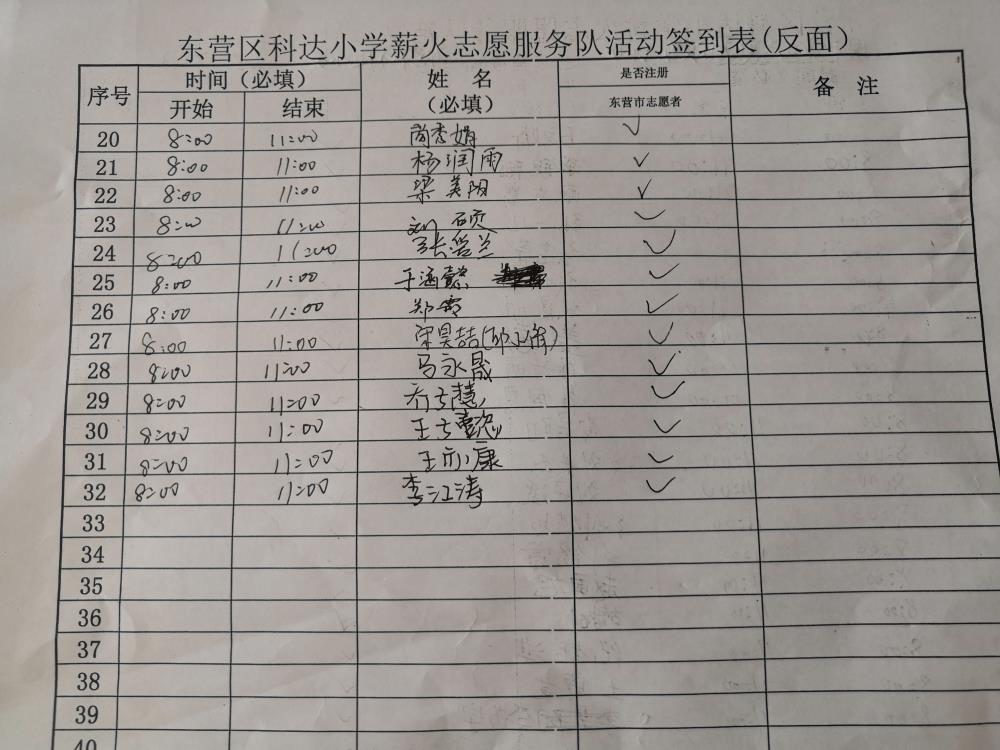 东营区科达小学薪火志愿服务队活动签到表(反面)
序号 时间（必填） 姓 名（必填） 是否注册 东营市志愿者 备 注
开始 结束
20 8:00 11:00 尚秀娟 ✓
21 8:00 11:00 杨润雨 ✓
22 8:00 11:00 梁美阳 ✓
23 8:00 11:00 刘硕 ✓
24 8:00 11:00 张 兰 ✓
25 8:00 11:00 于涵懿 ✓
26 8:00 11:00 郑雪 ✓
27 8:00 11:00 宋昊喆( ) ✓
28 8:00 11:00 马永晟 ✓
29 8:00 11:00 慧 ✓
30 8:00 11:00 王 ✓
31 8:00 11:00 王 康 ✓
32 8:00 11:00 李江涛 ✓
33
34
35
36
37
38
39
40